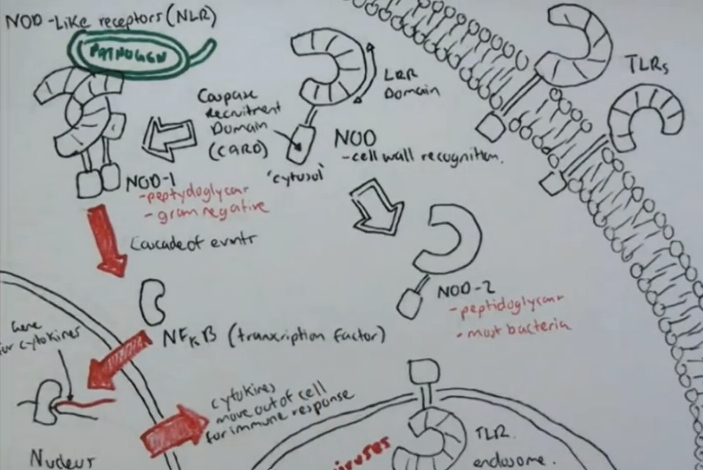 NOD-Like receptors (NLR)
PATHOGEN
TLRs
LRR
Domain
Caspase
Recruitment
Domain
(CARD)
NOD
-cell wall recognition.
'cytosol'
NOD-1
-peptydoglycan
-gram negative
Cascade of events
NOD-2
-peptidoglycan
-most bacteria
NFκB (transcription factor)
Gene
for cytokines
cytokines
move out of cell
for immune response
Nucleus
viruses
TLR
endosome.